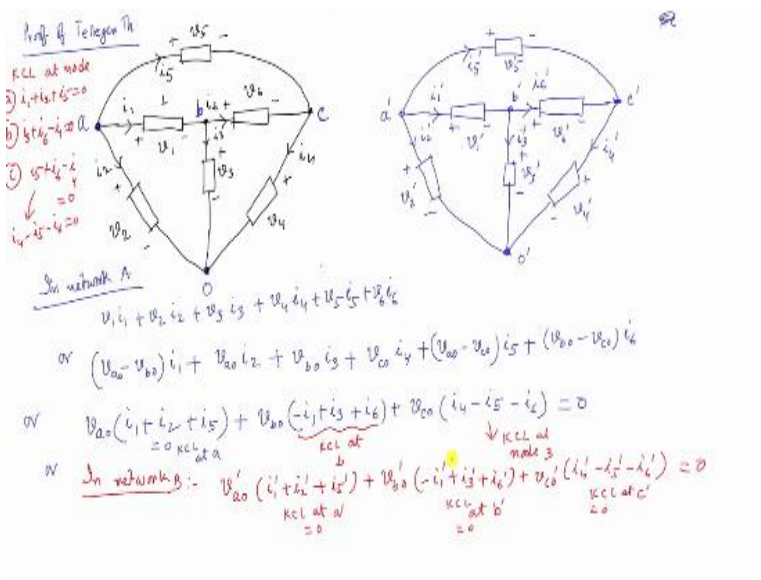 Proof of Tellegen Th
KCL at node
(a) i1+i2+i5=0
(b) i3+i6-i1=0
(c) i5+i6-i4=0
i4-i5-i6=0
+ v5 -
i5
a
i1
1
+ v1 -
b
i6
+ v6 -
c
i2
+ v2 -
i3
+ v3 -
i4
+ v4 -
O
+ v5' -
i5'
a'
i1'
+ v1' -
b'
i6'
+ v6' -
c'
i2'
+ v2' -
i3'
+ v3' -
i4'
+ v4' -
O'
In network A
v1 i1 + v2 i2 + v3 i3 + v4 i4 + v5 i5 + v6 i6
or (vao - vbo) i1 + vao i2 + vbo i3 + vco i4 + (vao - vco) i5 + (vbo - vco) i6
or vao (i1 + i2 + i5) + vbo (-i1 + i3 + i6) + vco (i4 - i5 - i6) = 0
=0 KCL at a
KCL at b
KCL at node 3
or In network B:- v'ao (i1' + i2' + i5') + v'bo (-i1' + i3' + i6') + v'co (i4' - i5' - i6') = 0
KCL at a' =0
KCL at b' =0
KCL at c' =0